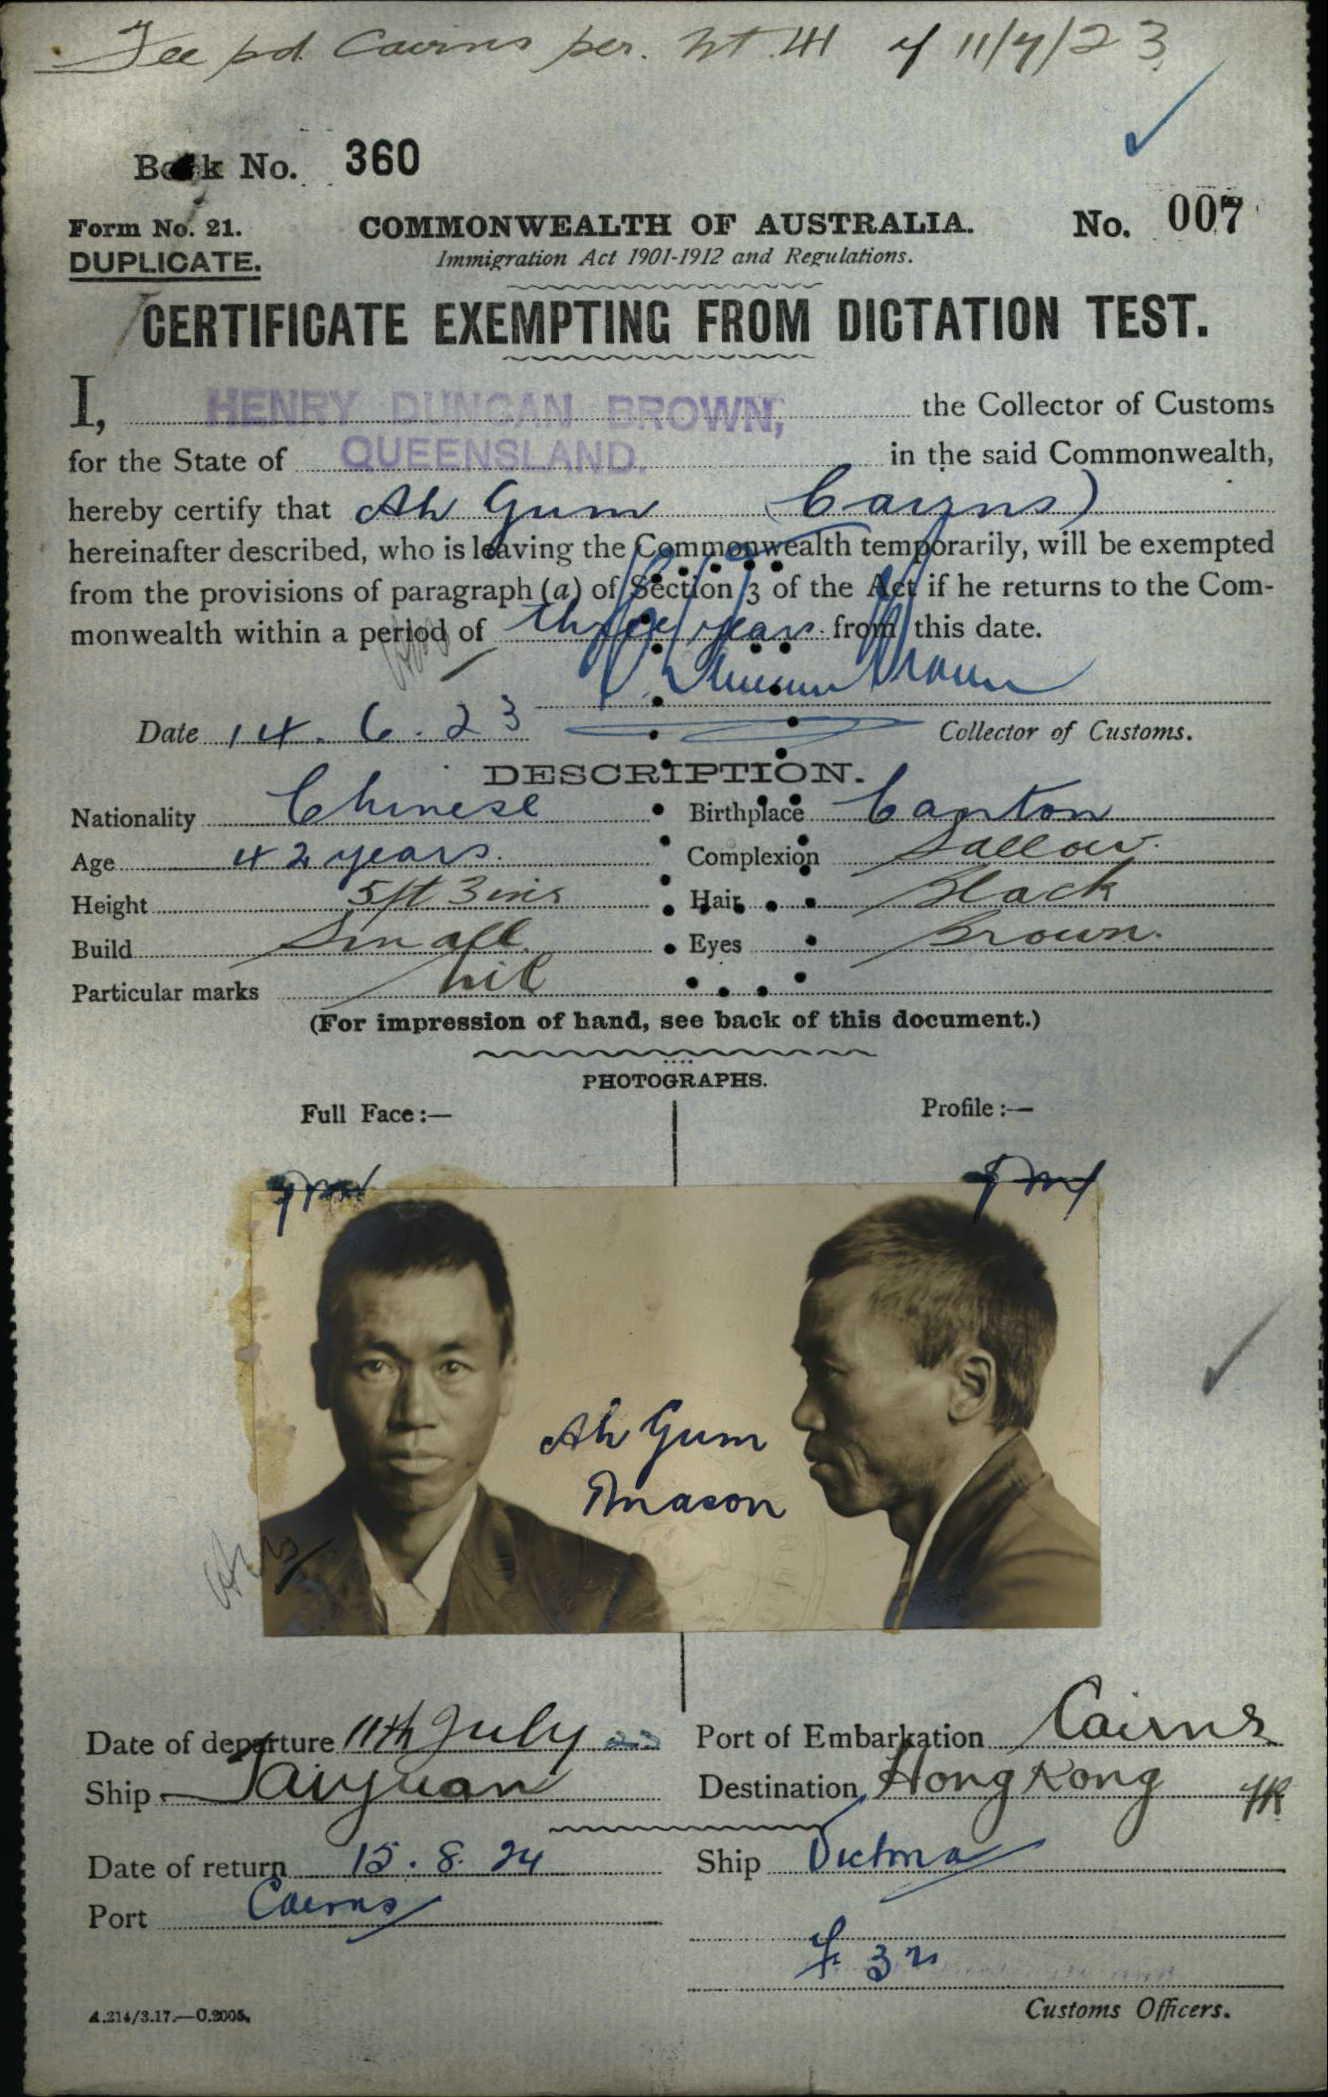 Fee pd. Cairns per. of 11/7/23
Book No. 360
Form No. 21.
DUPLICATE.
COMMONWEALTH OF AUSTRALIA.
Immigration Act 1901-1912 and Regulations.
No. 007
CERTIFICATE EXEMPTING FROM DICTATION TEST.
I, HENRY DUNCAN BROWN, the Collector of Customs
for the State of QUEENSLAND. in the said Commonwealth,
hereby certify that Ah Gum (Cairns)
hereinafter described, who is leaving the Commonwealth temporarily, will be exempted
from the provisions of paragraph (a) of Section 3 of the Act if he returns to the Com-
monwealth within a period of three years from this date.
H Duncan Brown
Date 14.6.23 Collector of Customs.
DESCRIPTION.
Nationality Chinese Birthplace Canton
Age 42 years. Complexion Sallow.
Height 5ft 3ins Hair Black
Build Small Eyes Brown.
Particular marks nil
(For impression of hand, see back of this document.)
PHOTOGRAPHS.
Full Face:— Profile:—
Ah Gum
Mason
Date of departure 11th July 23 Port of Embarkation Cairns
Ship Taiyuan Destination Hong Kong
Date of return 15.8.24 Ship Victoria
Port Cairns
Customs Officers.
A.214/3.17.—C.2005.